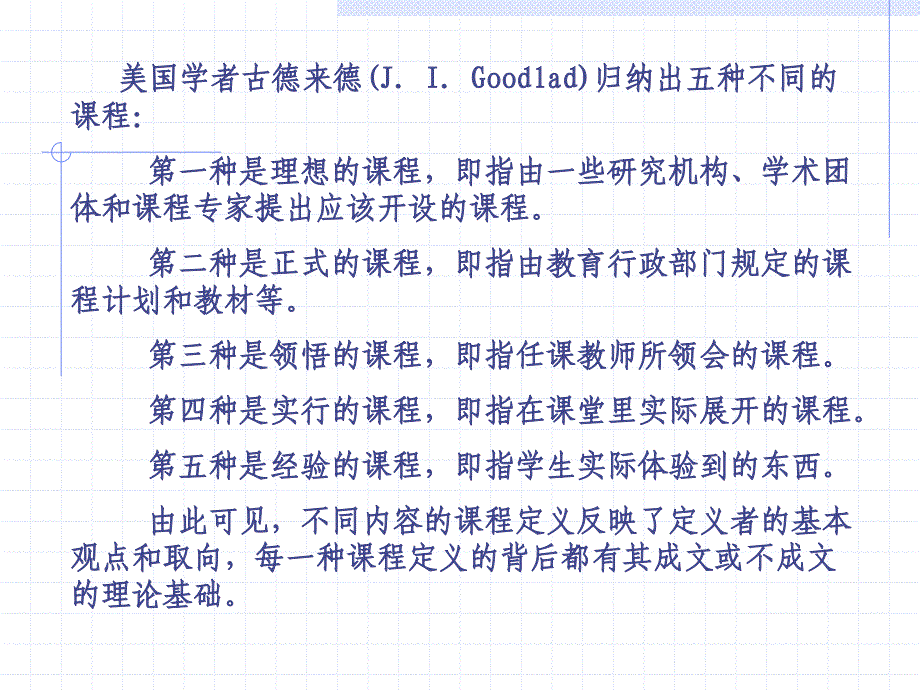 美国学者古德来德(J. I. Goodlad)归纳出五种不同的
课程：
第一种是理想的课程，即指由一些研究机构、学术团
体和课程专家提出应该开设的课程。
第二种是正式的课程，即指由教育行政部门规定的课
程计划和教材等。
第三种是领悟的课程，即指任课教师所领会的课程。
第四种是实行的课程，即指在课堂里实际展开的课程。
第五种是经验的课程，即指学生实际体验到的东西。
由此可见，不同内容的课程定义反映了定义者的基本
观点和取向，每一种课程定义的背后都有其成文或不成文
的理论基础。